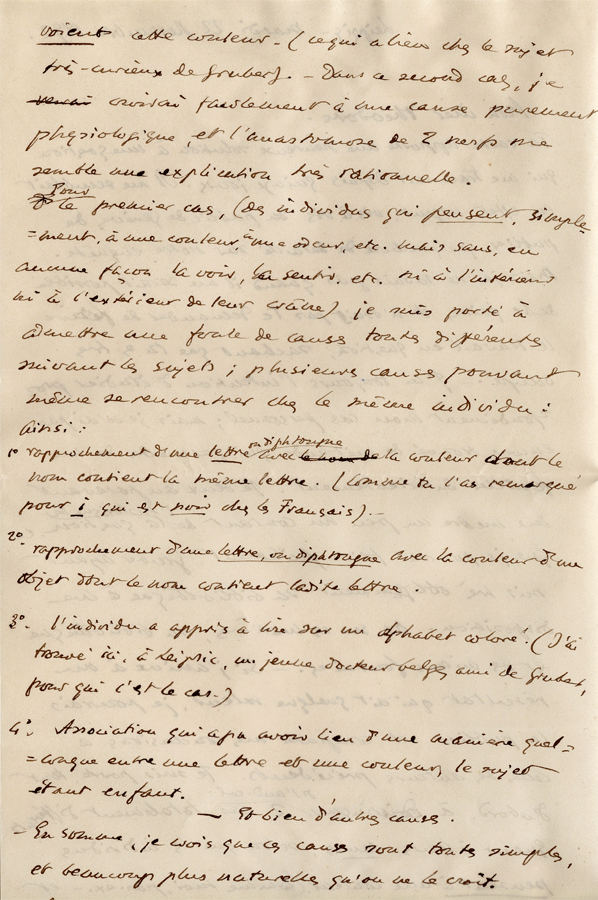 voient cette couleur. (ce qui a lieu chez le sujet
très-curieux de Gruber). – Dans ce second cas, je
croirai facilement à une cause purement
physiologique, et l'anastomose de 2 nerfs me
semble une explication très rationnelle.
Pour
le premier cas, (des individus qui pensent, simple-
=ment, à une couleur, à une odeur, etc. mais sans, en
aucune façon la voir, la sentir, etc. ni à l'intérieur
ni à l'extérieur de leur crâne) je suis porté à
admettre une foule de causes toutes différentes
suivant les sujets ; plusieurs causes pouvant
même se rencontrer chez le même individu :
ainsi :
ou diphtongue
1º rapprochement d'une lettre avec le nom de la couleur dont le
nom contient la même lettre. (Comme tu l'as remarqué
pour i qui est noir chez les Français). –
2º. rapprochement d'une lettre, ou diphtongue avec la couleur d'un
objet dont le nom contient ladite lettre.
3º. l'individu a appris à lire sur un alphabet coloré. (J'ai
trouvé ici, à Leipzic, un jeune docteur belge, ami de Gruber,
pour qui c'est le cas.)
4º. Association qui a pu avoir lieu d'une manière quel=
=conque entre une lettre et une couleur, le sujet
étant enfant.
— Et bien d'autres causes.
– En somme, je crois que ces causes sont toutes simples,
et beaucoup plus naturelles qu'on ne le croit.